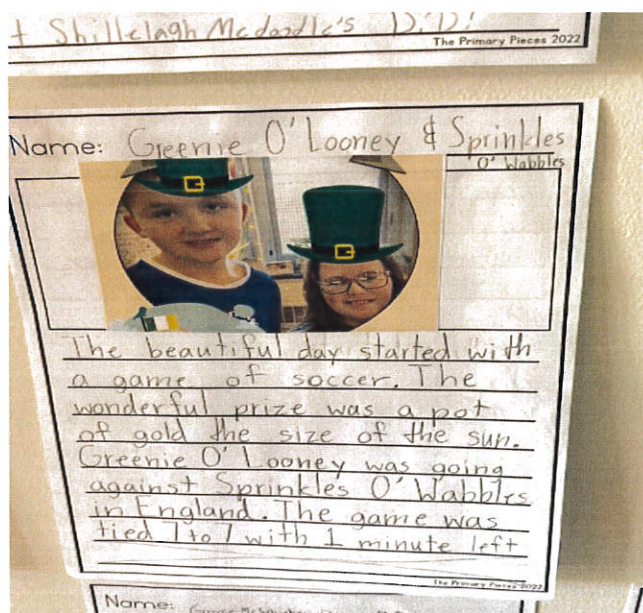 t Shillelagh Mcdoodle's D.D!
The Primary Pieces 2022
Name: Greenie O'Looney & Sprinkles
O' Wabbles
The beautiful day started with
a game of soccer. The
wonderful prize was a pot
of gold the size of the sun.
Greenie O' Looney was going
against Sprinkles O' Wabbles
in England. The game was
tied 7 to 7 with 1 minute left
The Primary Pieces 2022
Name: